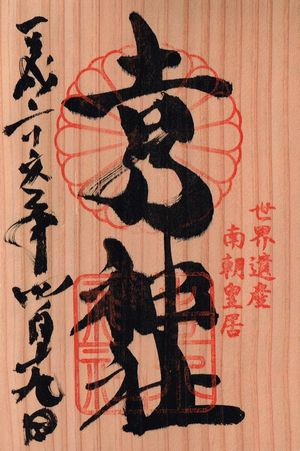 世界遺産
南朝皇居
吉水神社
平成二十六年四月十九日